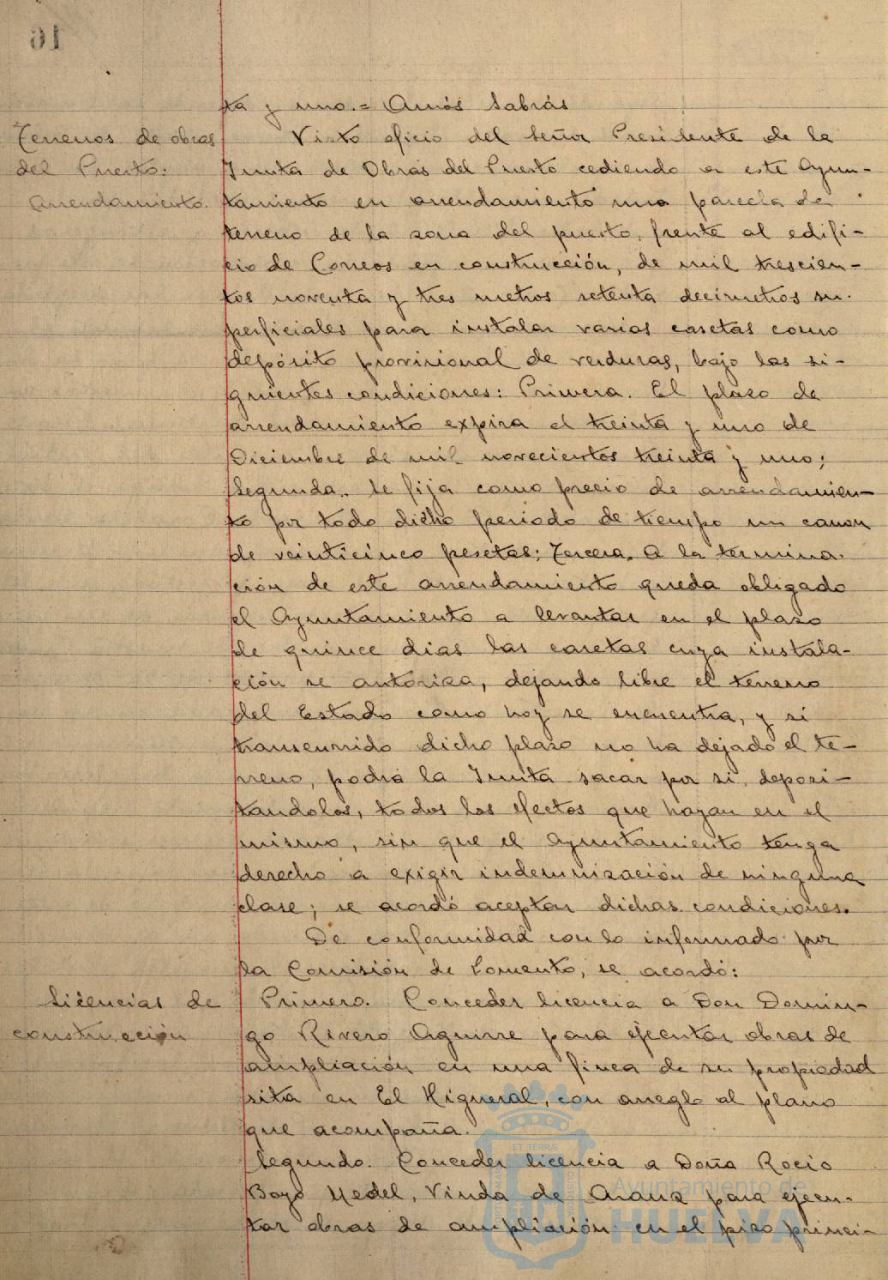 16
ta y uno.= Amós Sabrás
Terrenos de obras
del Puerto:
Arrendamiento.
Visto oficio del Señor Presidente de la
Junta de Obras del Puerto cediendo a este Ayun-
tamiento en arrendamiento una parcela de
terreno de la zona del puerto, frente al edifi-
cio de Correos en construcción, de mil trescien-
tos noventa y tres metros setenta decímetros su-
perficiales para instalar varias casetas como
depósito provisional de verduras, bajo las si-
guientes condiciones: Primera. El plazo de
arrendamiento expira el treinta y uno de
Diciembre de mil novecientos treinta y uno;
Segunda.. Se fija como precio de arrendamien-
to por todo dicho periodo de tiempo un canon
de veinticinco pesetas; Tercera. A la termina-
ción de este arrendamiento queda obligado
el Ayuntamiento a levantar en el plazo
de quince dias las casetas cuya instala-
ción se autoriza, dejando libre el terreno
del Estado como hoy se encuentra, y si
transcurrido dicho plazo no ha dejado el te-
rreno, podrá la Junta sacar por si, deposi-
tandolos, todos los efectos que hayan en el
mismo, sin que el Ayuntamiento tenga
derecho a exigir indemnización de ninguna
clase; se acordó aceptar dichas condiciones.
De conformidad con lo informado por
la Comisión de Fomento, se acordó:
Licencias de
construcción
Primero. Conceder licencia a Don Domin-
go Rivero Aguirre para ejecutar obras de
ampliación en una finca de su propiedad
sita en El Higueral, con arreglo al plano
que acompaña.
Segundo. Conceder licencia a Doña Rocio
Bayo Medel, Viuda de Arauz para ejecu-
tar obras de ampliación en el piso princi-
Ayuntamiento de
HUELVA